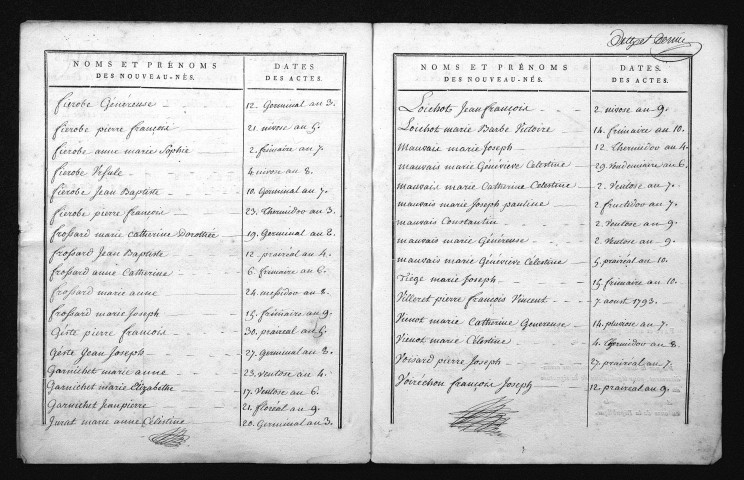 NOMS ET PRÉNOMS
DES NOUVEAU-NÉS.
DATES
DES ACTES.
fierobe Généreuse 12. Germinal an 3.
fierobe pierre françois 21 nivose an 5.
fierobe anne marie Sophie 2. frimaire an 7.
fierobe Ursule 4 nivose an 8.
fierobe Jean Baptiste 10. Germinal an 7.
fierobe pierre françois 23. thermidor an 3.
frossard marie catherine Dorothée 19. Germinal an 2.
frossard Jean Baptiste 12. prairéal an 4.
frossard anne Catherine 6. frimaire an 6.
frossard marie anne 24. messidor an 8.
frossard marie Joseph 15. frimaire an 9.
Géste pierre francois 30. prairéal an 5.
Géste Jean Joseph 27. Germinal an 8.
Garnichet marie anne 23. Ventose an 4.
Garnichet marie Elizabethe 17. Ventose an 6.
Garnichet Jean pierre 21. floréal an 9.
Jurat marie anne Célestine 20. Germinal an 3.
NOMS ET PRÉNOMS
DES NOUVEAU-NÉS.
DATES.
DES ACTES.
Loichot Jean françois 2. nivose an 9.
Loichot marie Barbe Victoire 14. frimaire an 10.
Mauvais marie Joseph 12. Thermidor an 4.
mauvais marie Généviéve Célestine 29. Vendemiaire an 6.
mauvais marie Catherine Célestine 2. Ventose an 7.
mauvais marie Joseph pauline 2. fructidor an 7.
mauvais Constantin 2. Ventose an 9.
mauvais marie Généreuse 2. Ventose an 9.
mauvais marie Généviéve Célestine 5. prairéal an 10.
marie Joseph 15. frimaire an 10.
Villeret pierre françois Vincent 7. aoust 1793.
Vienot marie Catherine Genereuse 14. pluviose an 7.
Vienot marie Célestine 4. thermidor an 8.
Voisard pierre Joseph 27. prairéal an 7.
Voirechon françois Joseph 12. prairéal an 9.